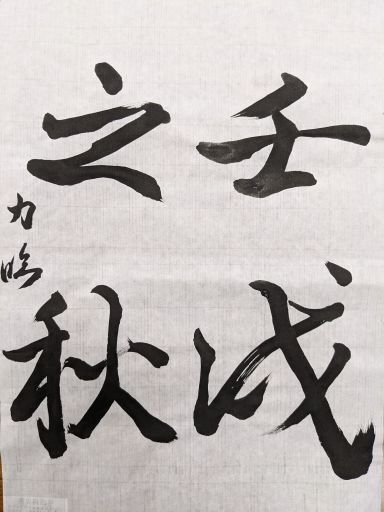 壬戌
之秋
力临